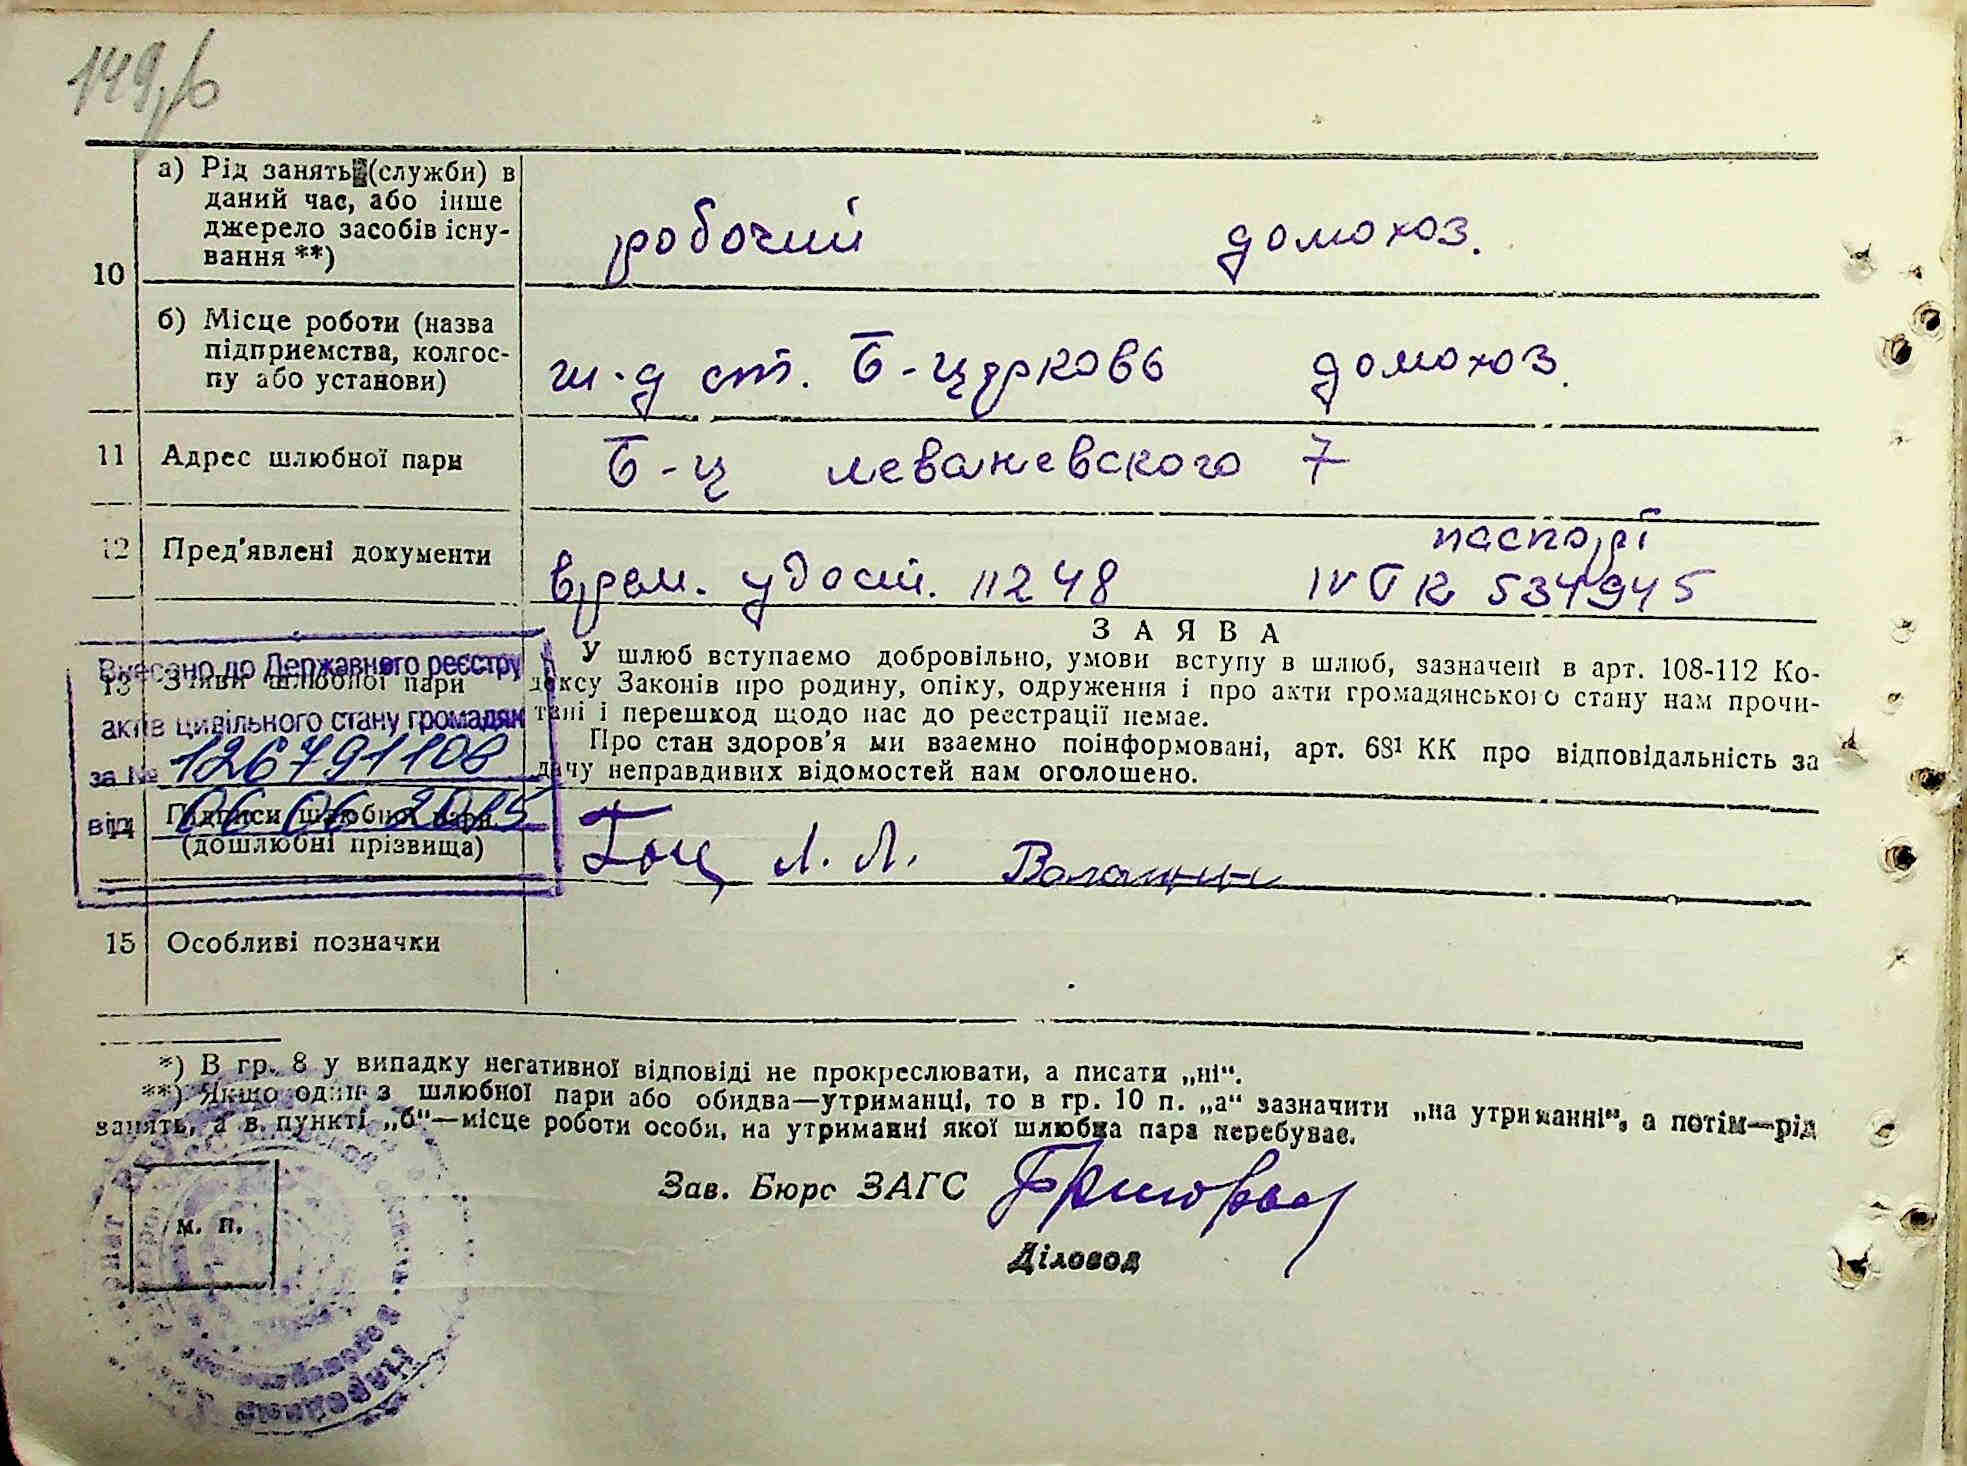 149,/о
10
а) Рід занять (служби) в
даний час, або інше
джерело засобів існу-
вання **)
робочий домохоз.
б) Місце роботи (назва
підприємства, колгос-
пу або установи)
ж-д ст. Б-церковь домохоз.
11 Адрес шлюбної пари Б-ц Леваневского 7
паспорт
12 Пред'явлені документи врем. удост. 11248 IV ТК 534945
ЗАЯВА
13 Заяви шлюбної пари
У шлюб вступаємо добровільно, умови вступу в шлюб, зазначені в арт. 108-112 Ко-
дексу Законів про родину, опіку, одруження і про акти громадянського стану нам прочи-
тані і перешкод щодо нас до реєстрації немає.
Про стан здоров'я ми взаємно поінформовані, арт. 68¹ КК про відповідальність за
дачу неправдивих відомостей нам оголошено.
Внесено до Державного реєстру
актів цивільного стану громадян
за №
від 06 06 2015
14 Підписи шлюбної пари
(дошлюбні прізвища)
Гоц Л. Л.
15 Особливі позначки
*) В гр. 8 у випадку негативної відповіді не прокреслювати, а писати „ні“.
**) Якщо один з шлюбної пари або обидва—утриманці, то в гр. 10 п. „а“ зазначити „на утриманні“, а потім—рід
занять, а в пункті „б“—місце роботи особи, на утриманні якої шлюбна пара перебуває.
Зав. Бюро ЗАГС
м. п.
Діловод